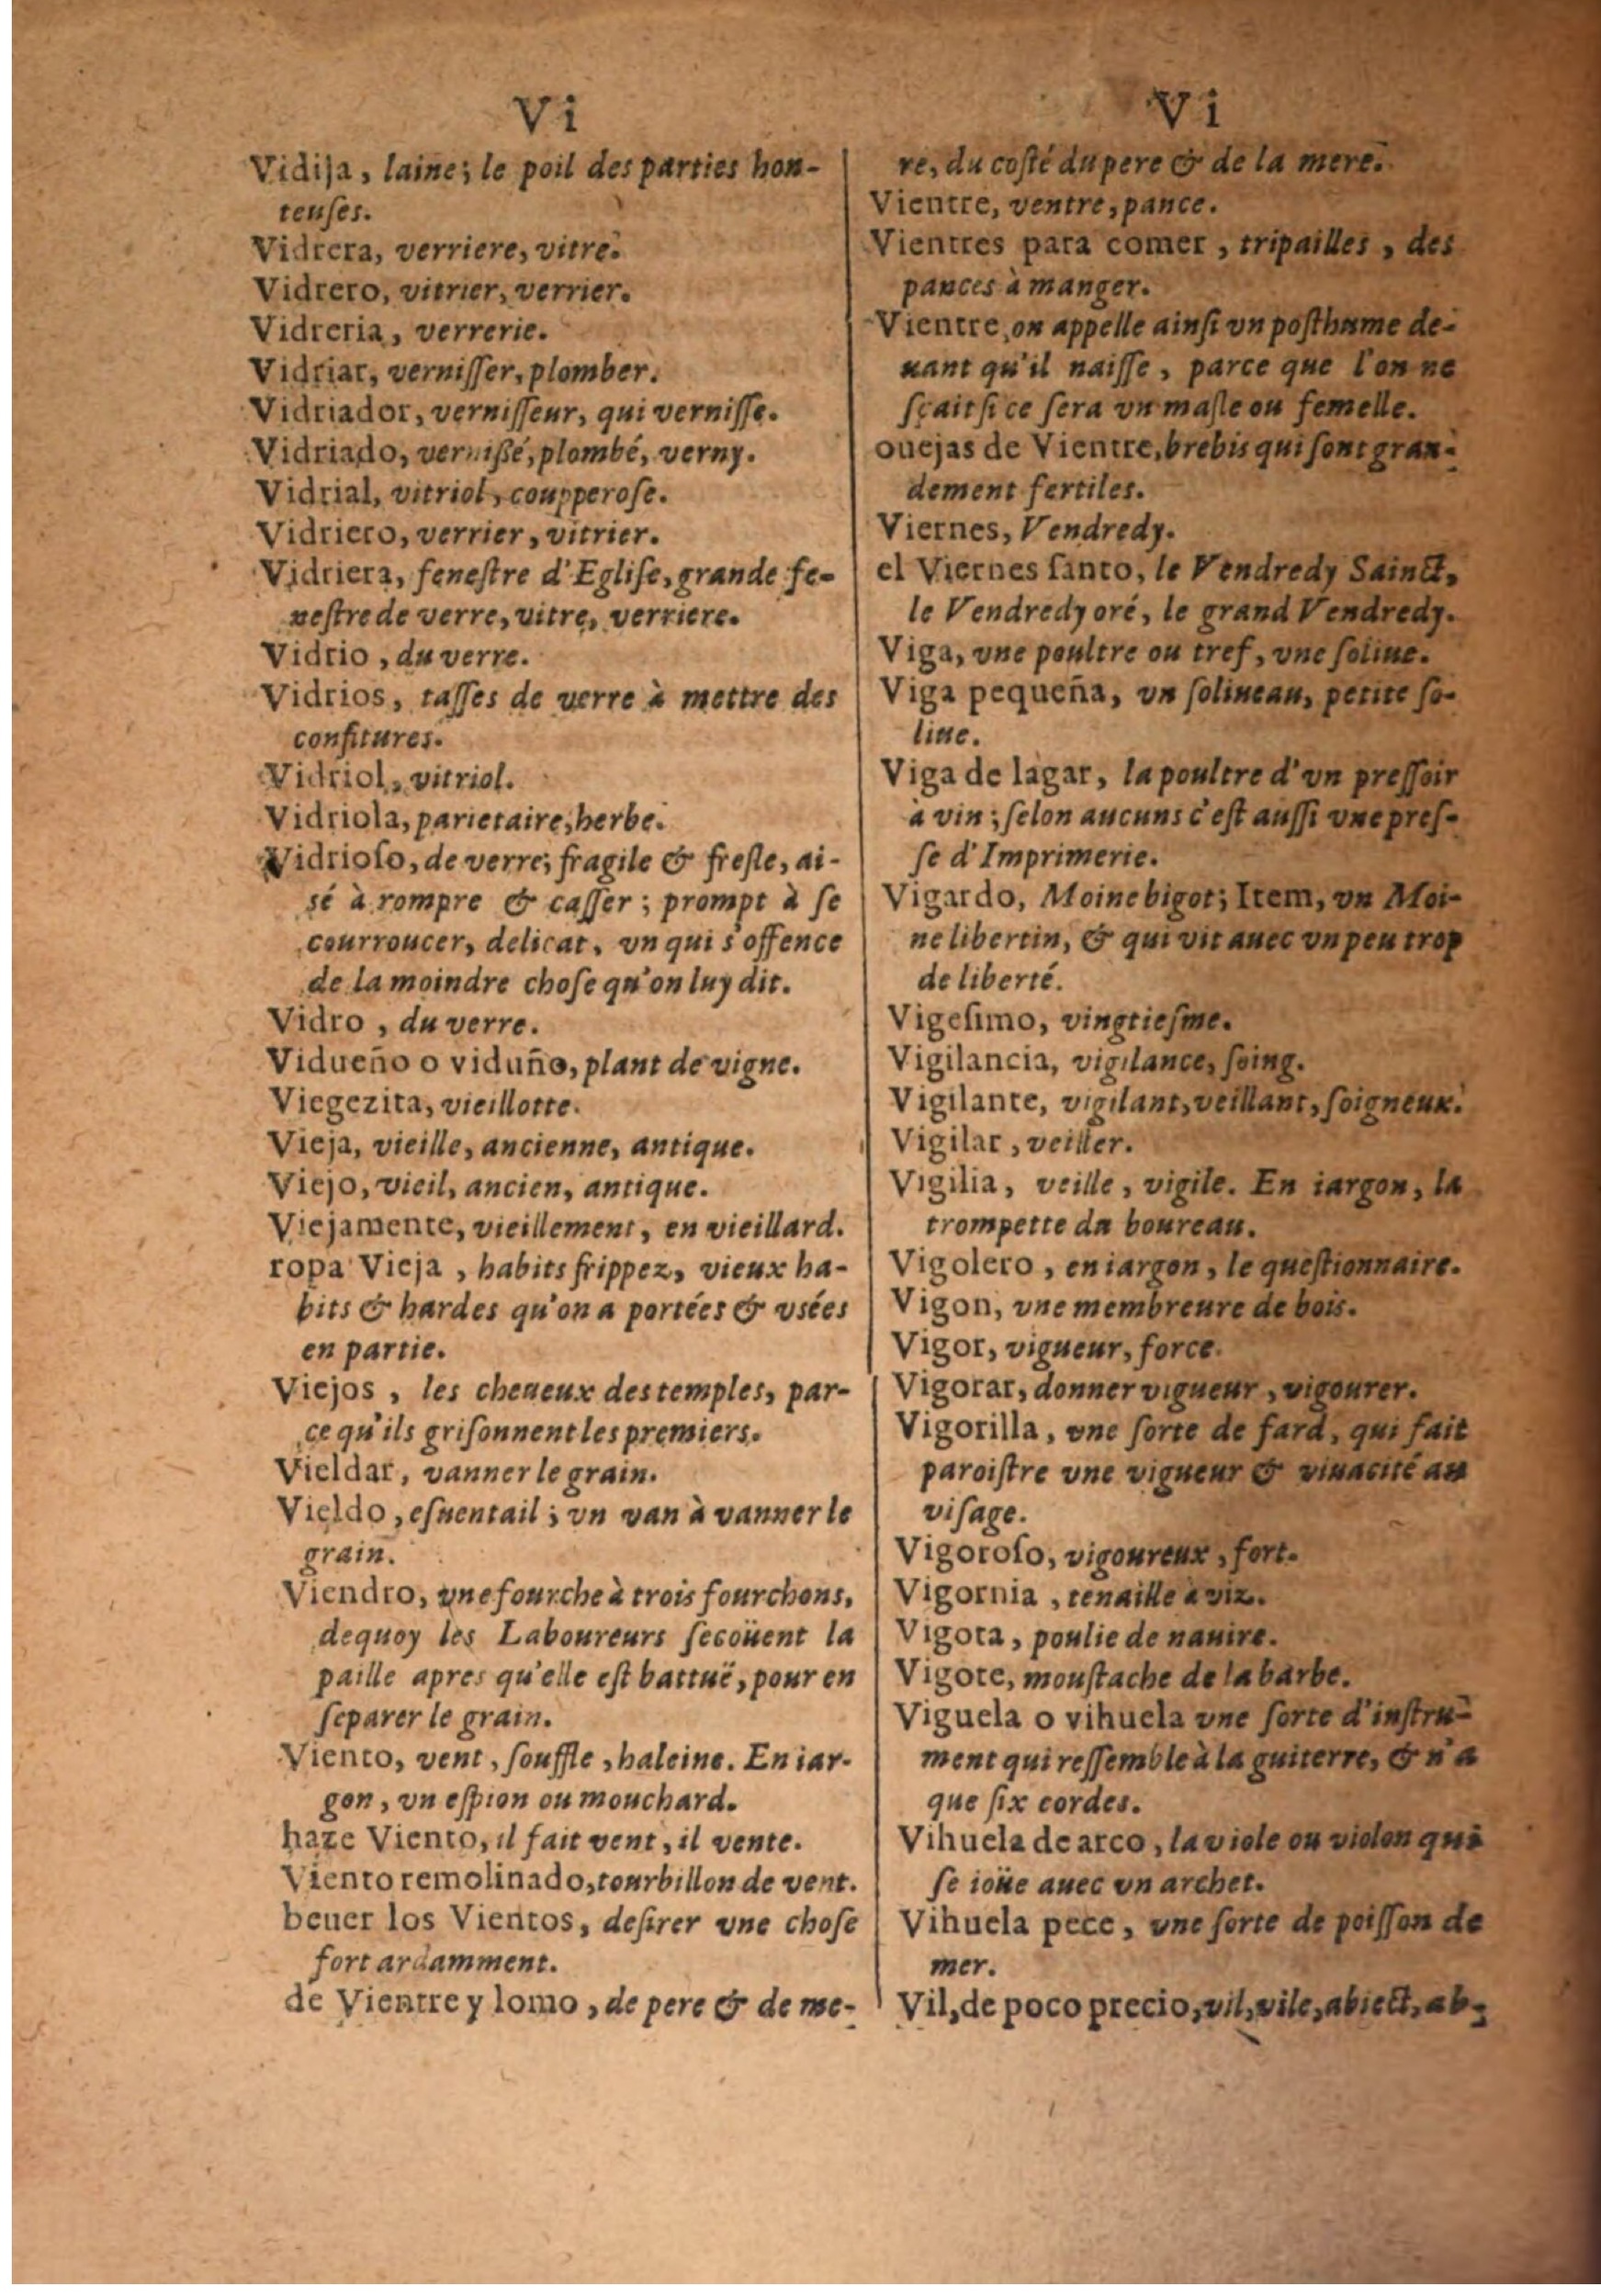 Vi
Vidija, laine; le poil des parties hon-
teuſes.
Vidrera, verriere, vitre.
Vidrero, vitrier, verrier.
Vidreria, verrerie.
Vidriar, verniſſer, plomber.
Vidriador, verniſſeur, qui verniſſe.
Vidriado, verniſsé, plombé, verny.
Vidrial, vitriol, coupperoſe.
Vidriero, verrier, vitrier.
Vidriera, feneſtre d'Egliſe, grande fe-
neſtre de verre, vitre, verriere.
Vidrio, du verre.
Vidrios, taſſes de verre à mettre des
confitures.
Vidriol, vitriol.
Vidriola, parietaire, herbe.
Vidrioſo, de verre; fragile & freſle, ai-
sé à rompre & caſſer; prompt à ſe
courroucer, delicat, vn qui s'offence
de la moindre choſe qu'on luy dit.
Vidro, du verre.
Vidueño o viduño, plant de vigne.
Viegezita, vieillotte.
Vieja, vieille, ancienne, antique.
Viejo, vieil, ancien, antique.
Viejamente, vieillement, en vieillard.
ropa Vieja, habits frippez, vieux ha-
bits & hardes qu'on a portées & vsées
en partie.
Viejos, les cheueux des temples, par-
ce qu'ils griſonnent les premiers.
Vieldar, vanner le grain.
Vieldo, eſuentail; vn van à vanner le
grain.
Viendro, vne fourche à trois fourchons,
dequoy les Laboureurs ſecoüent la
paille apres qu'elle eſt battuë, pour en
ſeparer le grain.
Viento, vent, ſouffle, haleine. En iar-
gon, vn eſpion ou mouchard.
haze Viento, il fait vent, il vente.
Viento remolinado, tourbillon de vent.
beuer los Vientos, deſirer vne choſe
fort ardamment.
de Vientre y lomo, de pere & de me-
Vi
re, du coſté du pere & de la mere.
Vientre, ventre, pance.
Vientres para comer, tripailles, des
pances à manger.
Vientre, on appelle ainſi vn poſthume de-
uant qu'il naiſſe, parce que l'on ne
ſçait ſi ce ſera vn maſle ou femelle.
ouejas de Vientre, brebis qui ſont gran-
dement fertiles.
Viernes, Vendredy.
el Viernes ſanto, le Vendredy Sainct,
le Vendredy oré, le grand Vendredy.
Viga, vne poultre ou tref, vne ſoliue.
Viga pequeña, vn ſolineau, petite ſo-
liue.
Viga de lagar, la poultre d'vn preſſoir
à vin; ſelon aucuns c'eſt auſſi vne preſ-
ſe d'Imprimerie.
Vigardo, Moine bigot; Item, vn Moi-
ne libertin, & qui vit auec vn peu trop
de liberté.
Vigeſimo, vingtieſme.
Vigilancia, vigilance, ſoing.
Vigilante, vigilant, veillant, ſoigneux.
Vigilar, veiller.
Vigilia, veille, vigile. En iargon, la
trompette du boureau.
Vigolero, en iargon, le queſtionnaire.
Vigon, vne membreure de bois.
Vigor, vigueur, force.
Vigorar, donner vigueur, vigourer.
Vigorilla, vne ſorte de fard, qui fait
paroiſtre vne vigueur & viuacité au
viſage.
Vigoroſo, vigoureux, fort.
Vigornia, tenaille à viz.
Vigota, poulie de nauire.
Vigote, mouſtache de la barbe.
Viguela o vihuela vne ſorte d'inſtru-
ment qui reſſemble à la guiterre, & n'a
que ſix cordes.
Vihuela de arco, la viole ou violon qui
ſe ioüe auec vn archet.
Vihuela pece, vne ſorte de poiſſon de
mer.
Vil, de poco precio, vil, vile, abiect, ab-